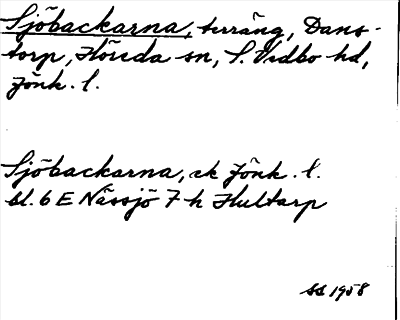 Sjöbackarna, terräng, Dans-
torp, Höreda sn, S. Vedbo hd,
Jönk. l.
Sjöbackarna, ek Jönk. l.
bl. 6 E Nässjö 7 h Hultarp
SS 1958